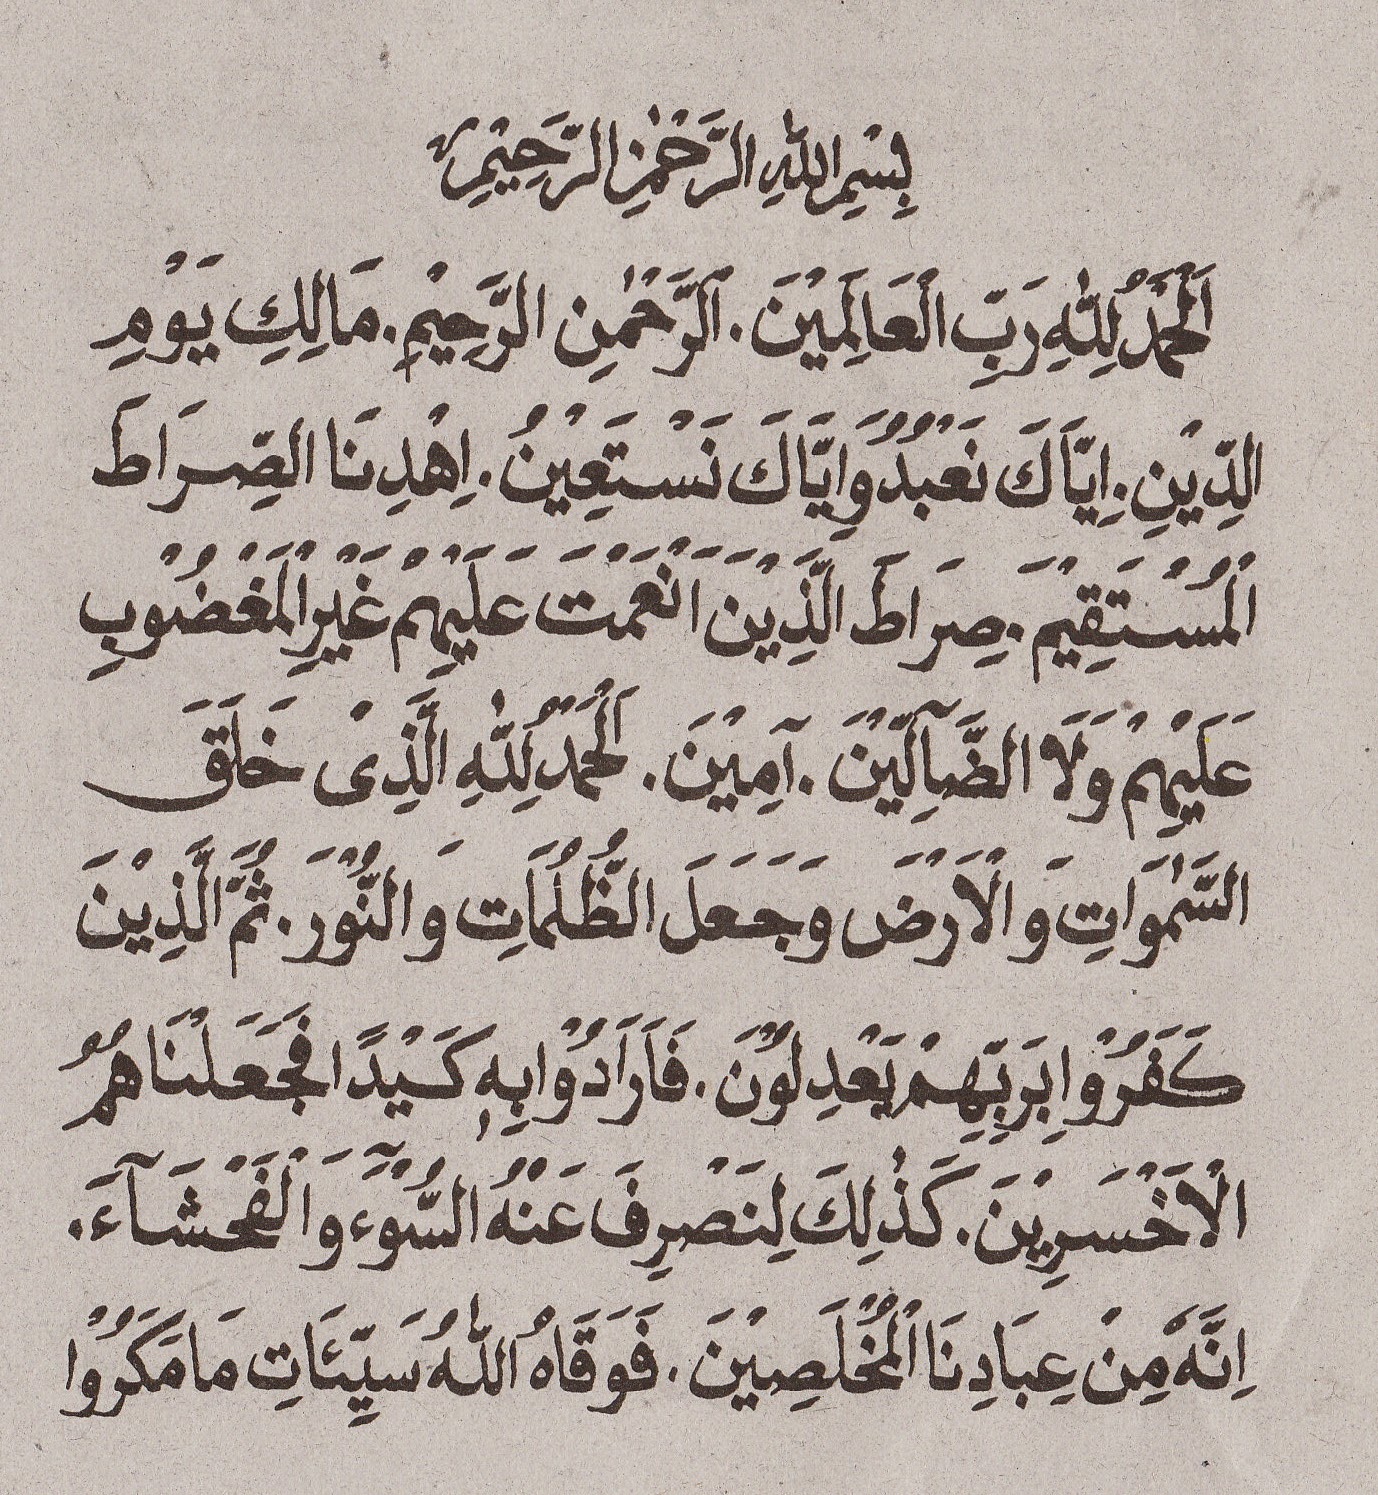 بِسْمِ اللهِ الرَّحْمٰنِ الرَّحِيْمِ
اَلْحَمْدُ لِلّٰهِ رَبِّ الْعَالَمِيْنَ. اَلرَّحْمٰنِ الرَّحِيْمِ. مَالِكِ يَوْمِ
الدِّيْنِ. اِيَّاكَ نَعْبُدُ وَاِيَّاكَ نَسْتَعِيْنُ. اِهْدِنَا الصِّرَاطَ
الْمُسْتَقِيْمَ. صِرَاطَ الَّذِيْنَ اَنْعَمْتَ عَلَيْهِمْ غَيْرِ الْمَغْضُوْبِ
عَلَيْهِمْ وَلَا الضَّآلِّيْنَ. آمِيْنَ. اَلْحَمْدُ لِلّٰهِ الَّذِىْ خَلَقَ
السَّمٰوَاتِ وَالْاَرْضَ وَجَعَلَ الظُّلُمَاتِ وَالنُّوْرَ. ثُمَّ الَّذِيْنَ
كَفَرُوْا بِرَبِّهِمْ يَعْدِلُوْنَ. فَاَرَادُوْا بِهٖ كَيْدًا فَجَعَلْنَاهُمُ
الْاَخْسَرِيْنَ. كَذٰلِكَ لِنَصْرِفَ عَنْهُ السُّوْٓءَ وَالْفَحْشَآءَ.
اِنَّهٗ مِنْ عِبَادِنَا الْمُخْلَصِيْنَ. فَوَقَاهُ اللّٰهُ سَيِّئَاتِ مَا مَكَرُوْا